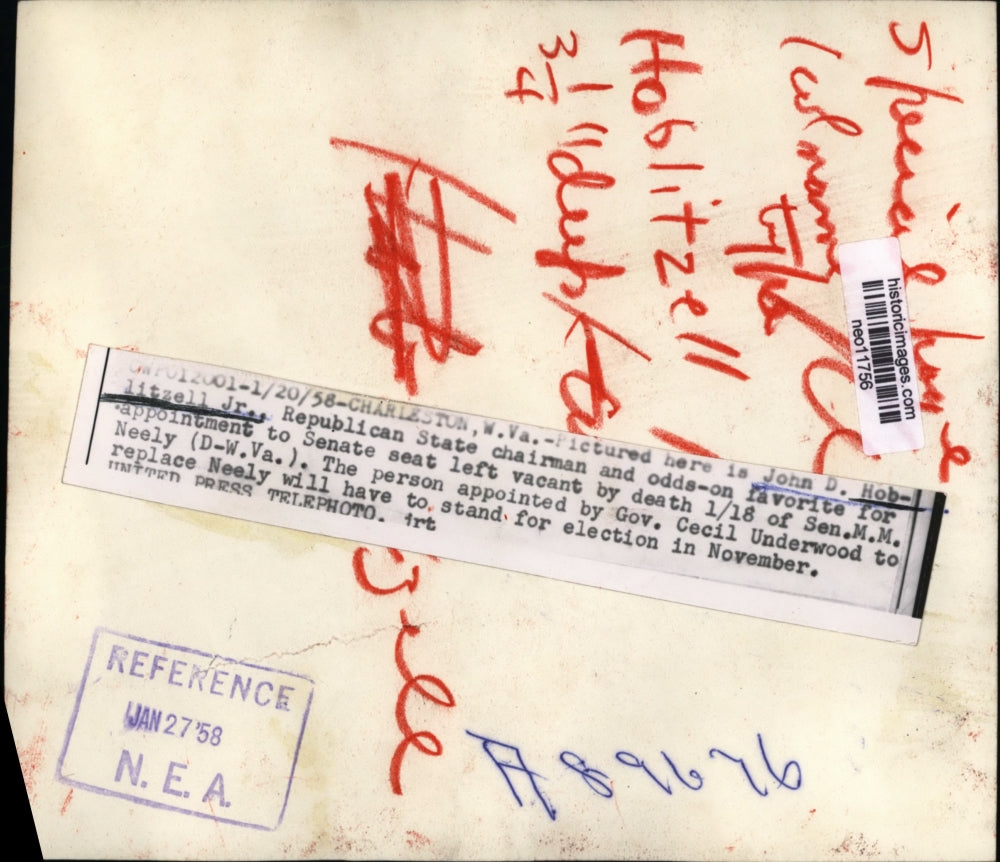 Hoblitzell
3 1/4" deep
historicimages.com
neo11756
-1/20/58-CHARLESTON, W.Va.-Pictured here is John D. Hob-
litzell Jr., Republican State chairman and odds-on favorite for
appointment to Senate seat left vacant by death 1/18 of Sen.M.M.
Neely (D-W.Va.). The person appointed by Gov. Cecil Underwood to
replace Neely will have to stand for election in November.
UNITED PRESS TELEPHOTO. jrt
REFERENCE
JAN 27 '58
N. E. A.